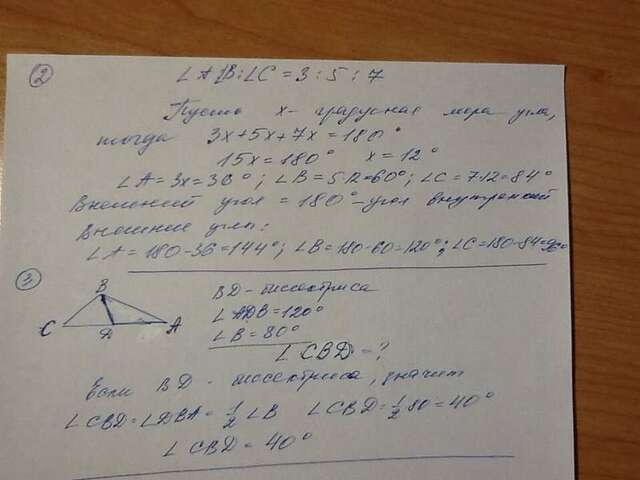 2
∠A:∠B:∠C = 3 : 5 : 7
Пусть x - градусная мера угла,
тогда 3x+5x+7x=180°
15x=180° x=12°
∠A=3x=36°; ∠B=5·12=60°; ∠C=7·12=84°
Внешний угол = 180° - угол внутренний
Внешние углы:
∠A=180-36=144°; ∠B=180-60=120°; ∠C=180-84=96°
3.
B
C D A
BD - биссектриса
∠ADB=120°
∠B=80°
∠CBD=?
Если BD - биссектриса, значит
∠CBD=∠DBA=1/2 ∠B ∠CBD=1/2·80=40°
∠CBD=40°